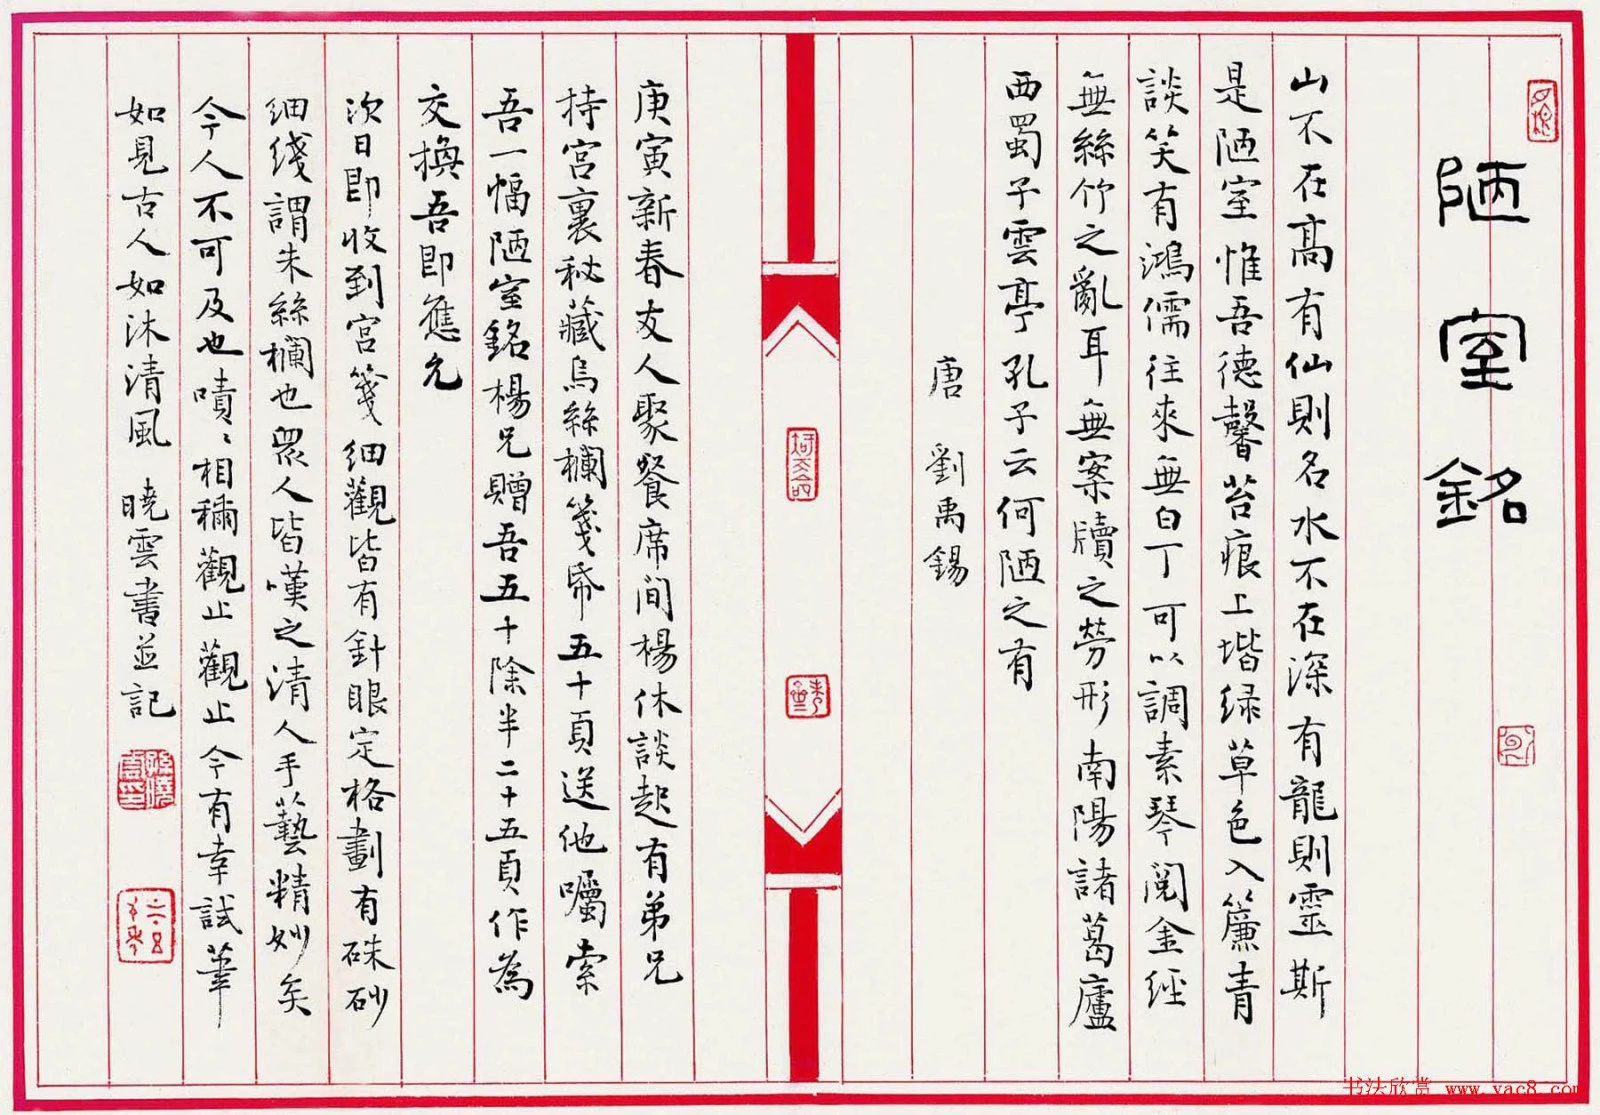 陋室銘
山不在高有仙則名水不在深有龍則靈斯
是陋室惟吾德馨苔痕上堦绿草色入簾青
談笑有鴻儒往來無白丁可以調素琴閱金經
無絲竹之亂耳無案牘之勞形南陽諸葛廬
西蜀子雲亭孔子云何陋之有
唐 劉禹錫
庚寅新春友人聚餐席间楊休談起有弟兄
持宮裏秘藏烏絲欄箋帋五十頁送他囑索
吾一幅陋室銘楊兄贈吾五十除半二十五頁作為
交換吾即應允
次日即收到宮箋细觀皆有針眼定格劃有硃砂
细綫謂朱絲欄也眾人皆嘆之清人手藝精妙矣
今人不可及也嘖、相稱觀止觀止今有幸試筆
如見古人如沐清風 曉雲書並記
书法欣赏 www.yac8.com